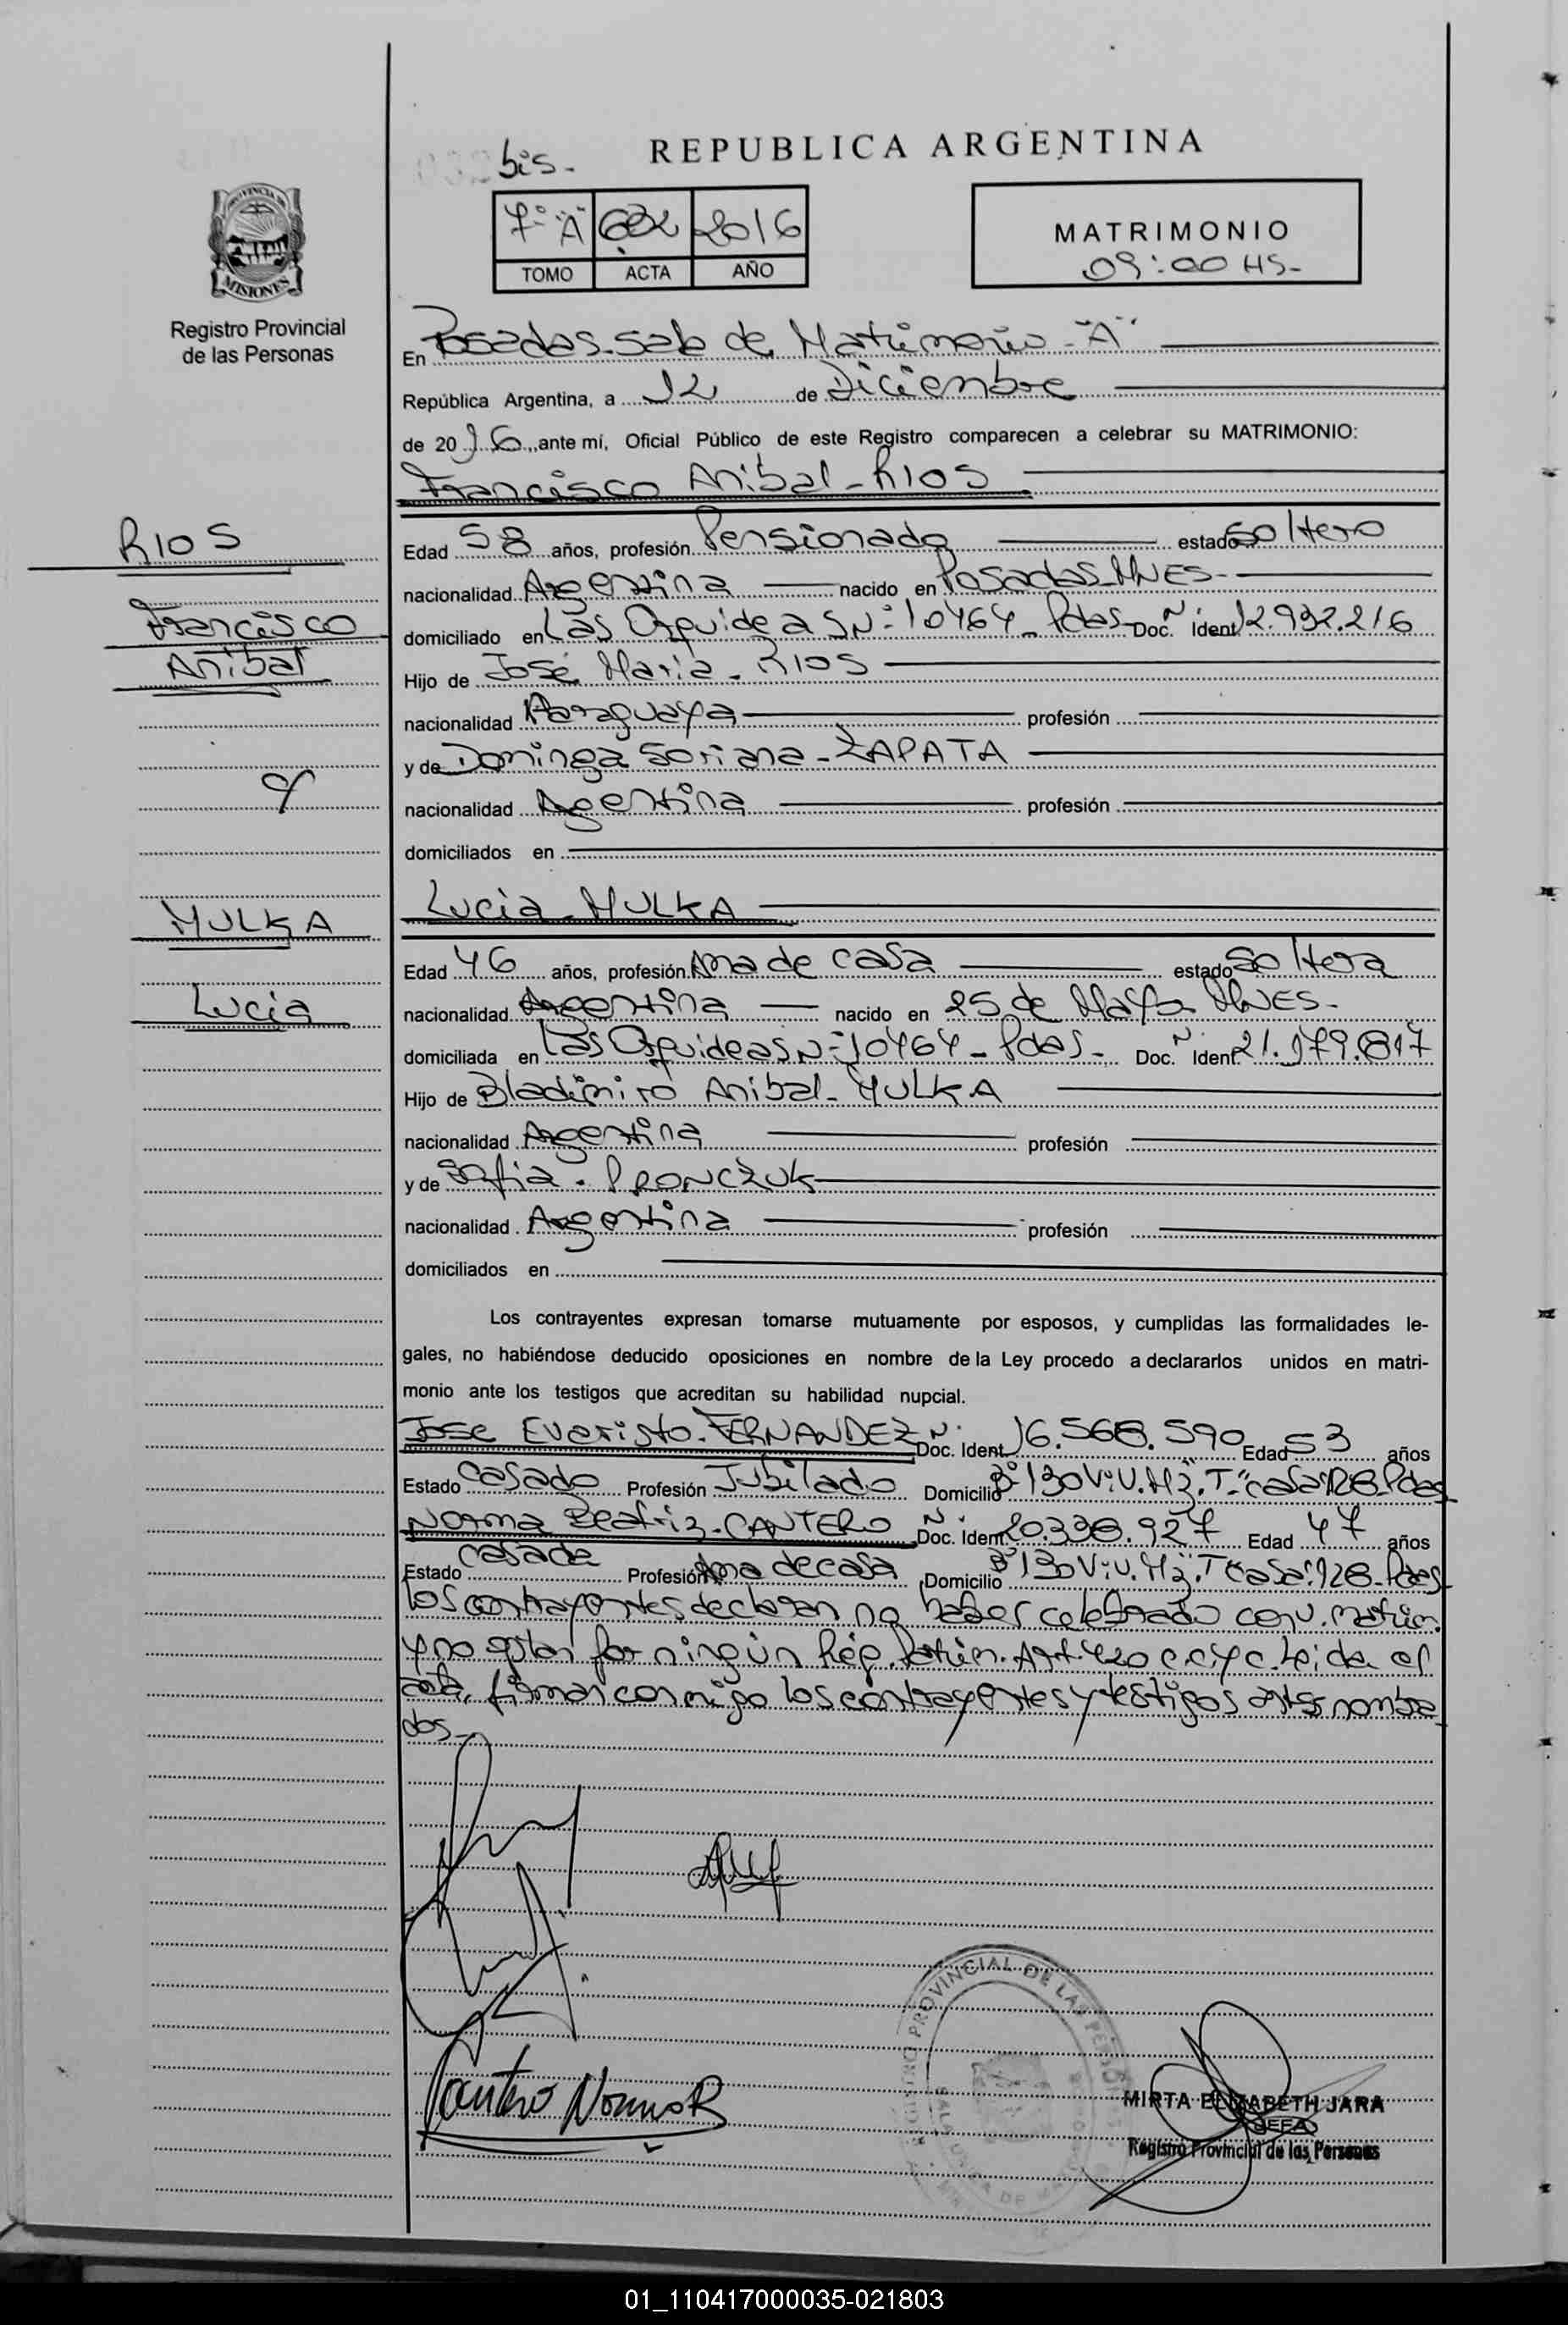 REPUBLICA ARGENTINA
bis-
7º "A" 632 2016
TOMO ACTA AÑO
MATRIMONIO
09:00 HS-
PROVINCIA DE
MISIONES
Registro Provincial
de las Personas
En Posadas-Sala de Matrimonio-"A"
República Argentina, a 12 de Diciembre
de 2016, ante mí, Oficial Público de este Registro comparecen a celebrar su MATRIMONIO:
Francisco Anibal-RIOS
RIOS
Francisco
Anibal
Edad 58 años, profesión Pensionado estado Soltero
nacionalidad Argentina nacido en Posadas-MNES-
domiciliado en Las Orquideas Nº 10464-Pdas- Doc. Ident Nº 12.932.216
Hijo de José Maria-RIOS
nacionalidad Paraguaya profesión
y de Dominga Soriana-ZAPATA
nacionalidad Argentina profesión
domiciliados en
y
MULKA
Lucia
Lucia-MULKA
Edad 46 años, profesión Ama de casa estado Soltera
nacionalidad Argentina nacido en 25 de Mayo MNES-
domiciliada en Las Orquideas Nº 10464-Pdas- Doc. Ident Nº 21.179.817
Hijo de Bladimiro Anibal-MULKA
nacionalidad Argentina profesión
y de Sofia-PRONCZUK
nacionalidad Argentina profesión
domiciliados en
Los contrayentes expresan tomarse mutuamente por esposos, y cumplidas las formalidades le-
gales, no habiéndose deducido oposiciones en nombre de la Ley procedo a declararlos unidos en matri-
monio ante los testigos que acreditan su habilidad nupcial.
Jose Evaristo-FERNANDEZ Doc. Ident Nº 16.568.590 Edad 53 años
Estado Casado Profesión Jubilado Domicilio Bº 130 Viv. Mz. T-Casa 128-Pdas
Norma Beatriz-CANTERO Doc. Ident Nº 20.338.927 Edad 47 años
Estado Casada Profesión Ama de casa Domicilio Bº 130 Viv. Mz. T Casa: 128-Pdas
los contrayentes declaran no haber celebrado conv. matrim.
y no optan por ningún Rég. Patrim. Art. 420 c.c. y c. Leida el
acta, firman conmigo los contrayentes y testigos antes nombra
dos-
Cantero Norma B
REGISTRO PROVINCIAL DE LAS PERSONAS
MIRTA ELIZABETH JARA
JEFA
Registro Provincial de las Personas
01_110417000035-021803